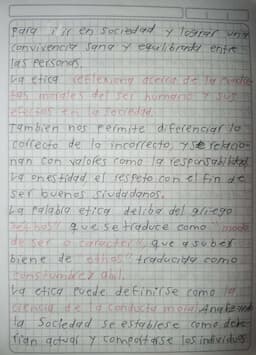 Para vivir en sociedad y lograr una
convivencia sana y equilibrada entre
las personas.
La etica reflexiona acerca de la
tos morales del ser humano y sus
efectos en la sociedad.
Tambien nos permite diferenciar lo
correcto de lo incorrecto, y se relacio-
nan con valores como la responsabilidad
La onestidad el respeto con el fin de
ser buenos siudadanos.
La palabra etica deliba del griego
que se traduce como modo
de ser o caracter que a su ber
biene de ethos traducida como
costumbre
La etica puede definirse como la
ciencia de la conducta moral Analizando
la sociedad se establese como debe
rian actuar y comportarse los individuos